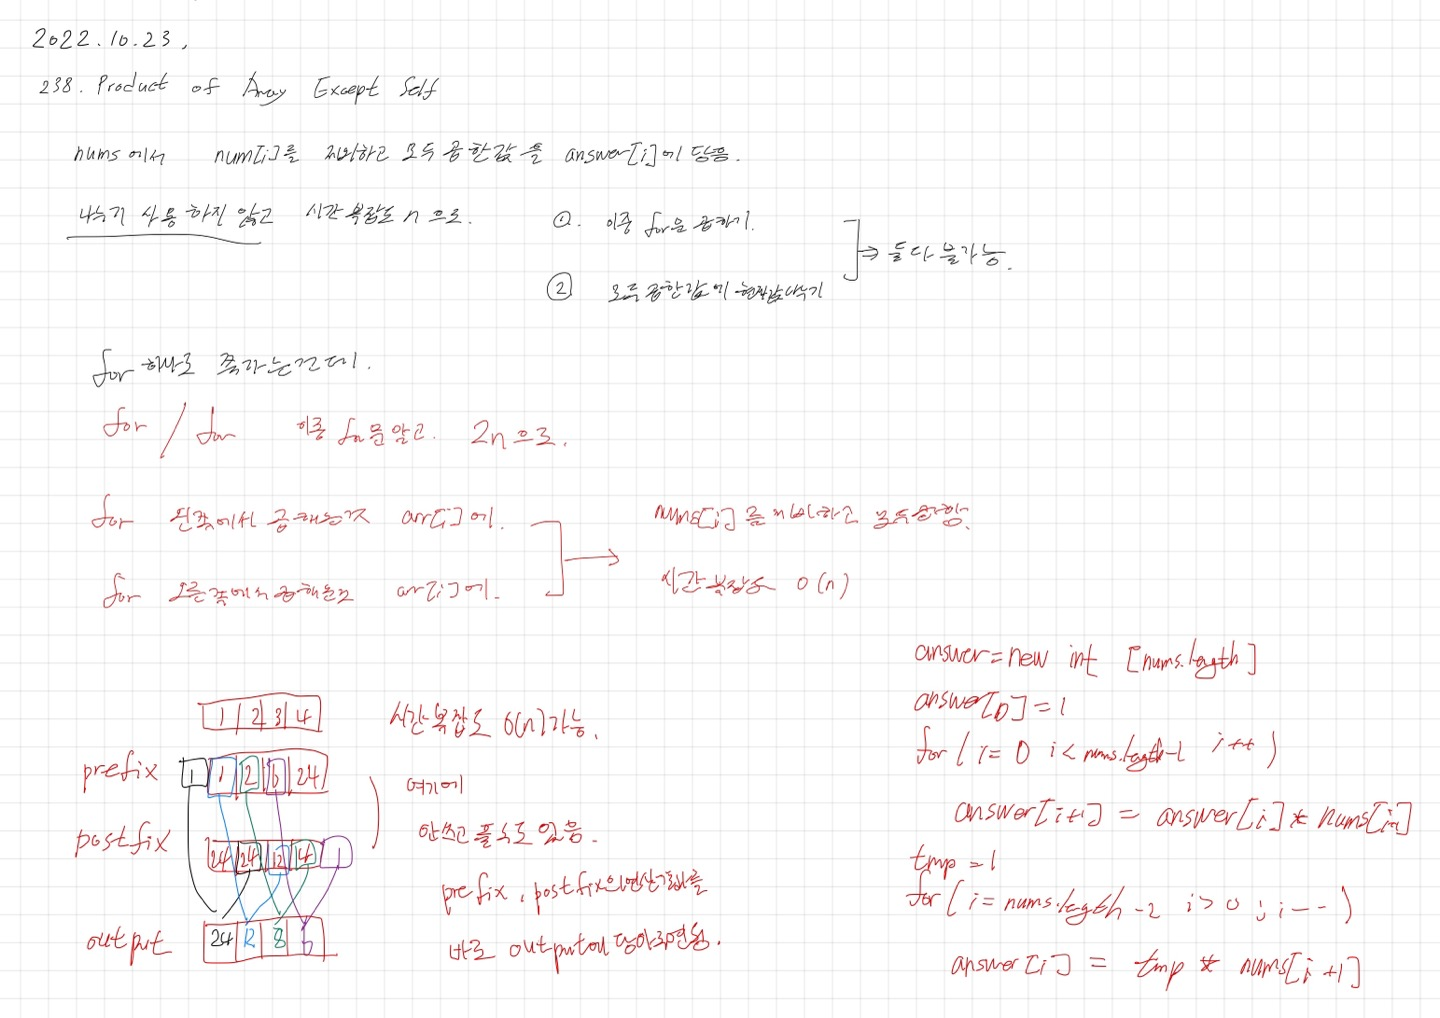 2022.10.23,
238. Product of Array Except Self
nums에서 num[i]를 제외하고 모두 곱한값을 answer[i]에 담음.
나누기 사용 하진 않고 시간 복잡도 n 으로.
①. 이중 for문 곱하기.
② 모두 곱한값에 현재값 나누기
→ 둘다 불가능.
for 하나로 쭉가는건데.
for / for 이중 for문 말고. 2n으로.
for 왼쪽에서 곱해는것 arr[i]에.
for 오른쪽에서 곱해는것 arr[i]에.
→ nums[i]를 제외하고 모두곱함.
시간복잡도 O(n)
1 2 3 4
시간 복잡도 O(n)가능.
prefix 1 1 2 6 24
여기에
postfix 24 24 12 4 1
안쓰고 풀수도 있음.
prefix, postfix의 연산 를
output 24 12 8 6
바로 output에 담아주면됨.
answer=new int [nums.length]
answer[0]=1
for ( i= 0 i< nums.length-1 i++ )
answer[i+1] = answer[i] * nums[i]
tmp =1
for ( i= nums.length -2 i>0 ; i-- )
answer[i] = tmp * nums[i+1]